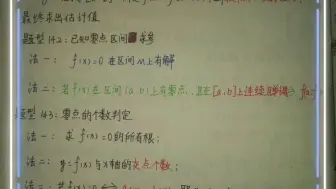 最终求出估计值
题型14.2：已知零点区间求参
法一：f(x)=0在区间M上有解
法二：若f(x)在区间(a,b)上有零点，且在[a,b]上连续
题型14.3：零点的个数判定
法一：求f(x)=0的所有根；
法二：y=f(x)与x轴的交点个数；